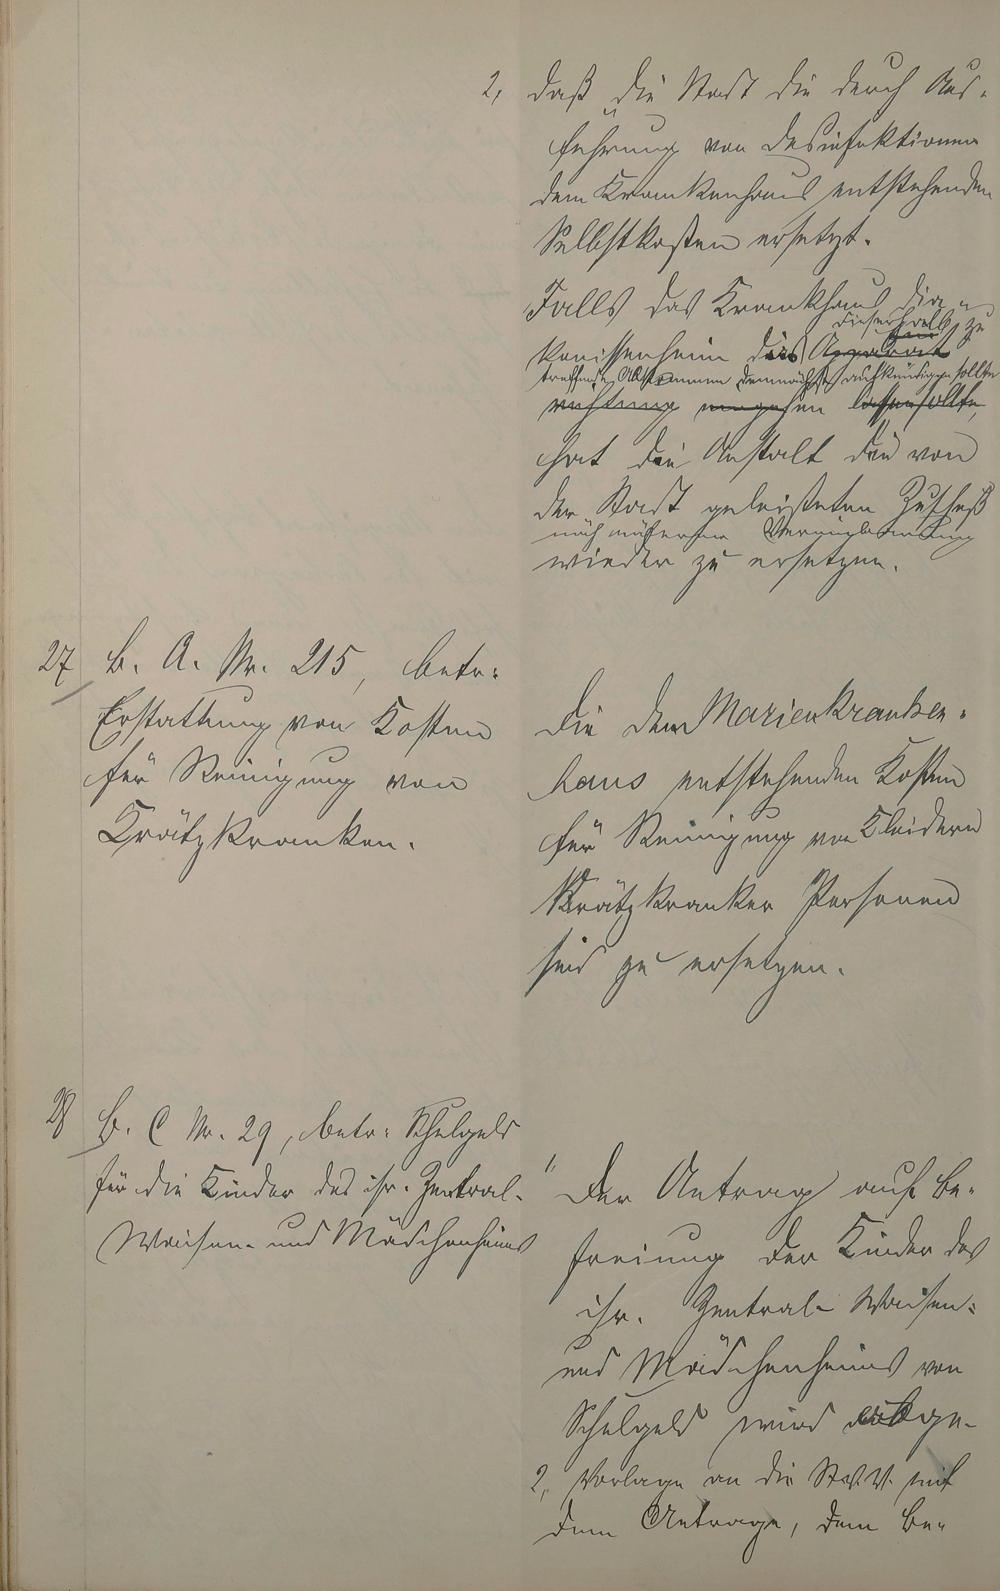 2, daß die Stadt die durch Aus-
führung von Desinfektionen
dem Krankenhaus entstehenden
Selbstkosten ersetzt.
Falls das Krankhaus Dia-
konissenheim das zu
treffende Abkommen demnächst aufkündigen sollte
hat die Anstalt den von
der Stadt geleisteten Zuschuß
nach näherer Vereinbarung
wieder zu ersetzen.
27 B. A. Nr. 215, betr.
Erstattung von Kosten
für Reinigung von
Krätzkranken.
Die dem Marienkranken-
haus entstehenden Kosten
für Reinigung von Kleidern
Krätzkranker Personen
sind zu ersetzen.
28 B. C Nr. 29, betr. Schulgeld
für die Kinder des isr. Zentral-
Waisen- und Mädchenheims
1, Der Antrag auf Be-
freiung der Kinder des
isr. Zentral- Waisen-
und Mädchenheims von
Schulgeld wird abge-
2, Vorlage an die St.V.V. mit
dem Antrage, dem Be-